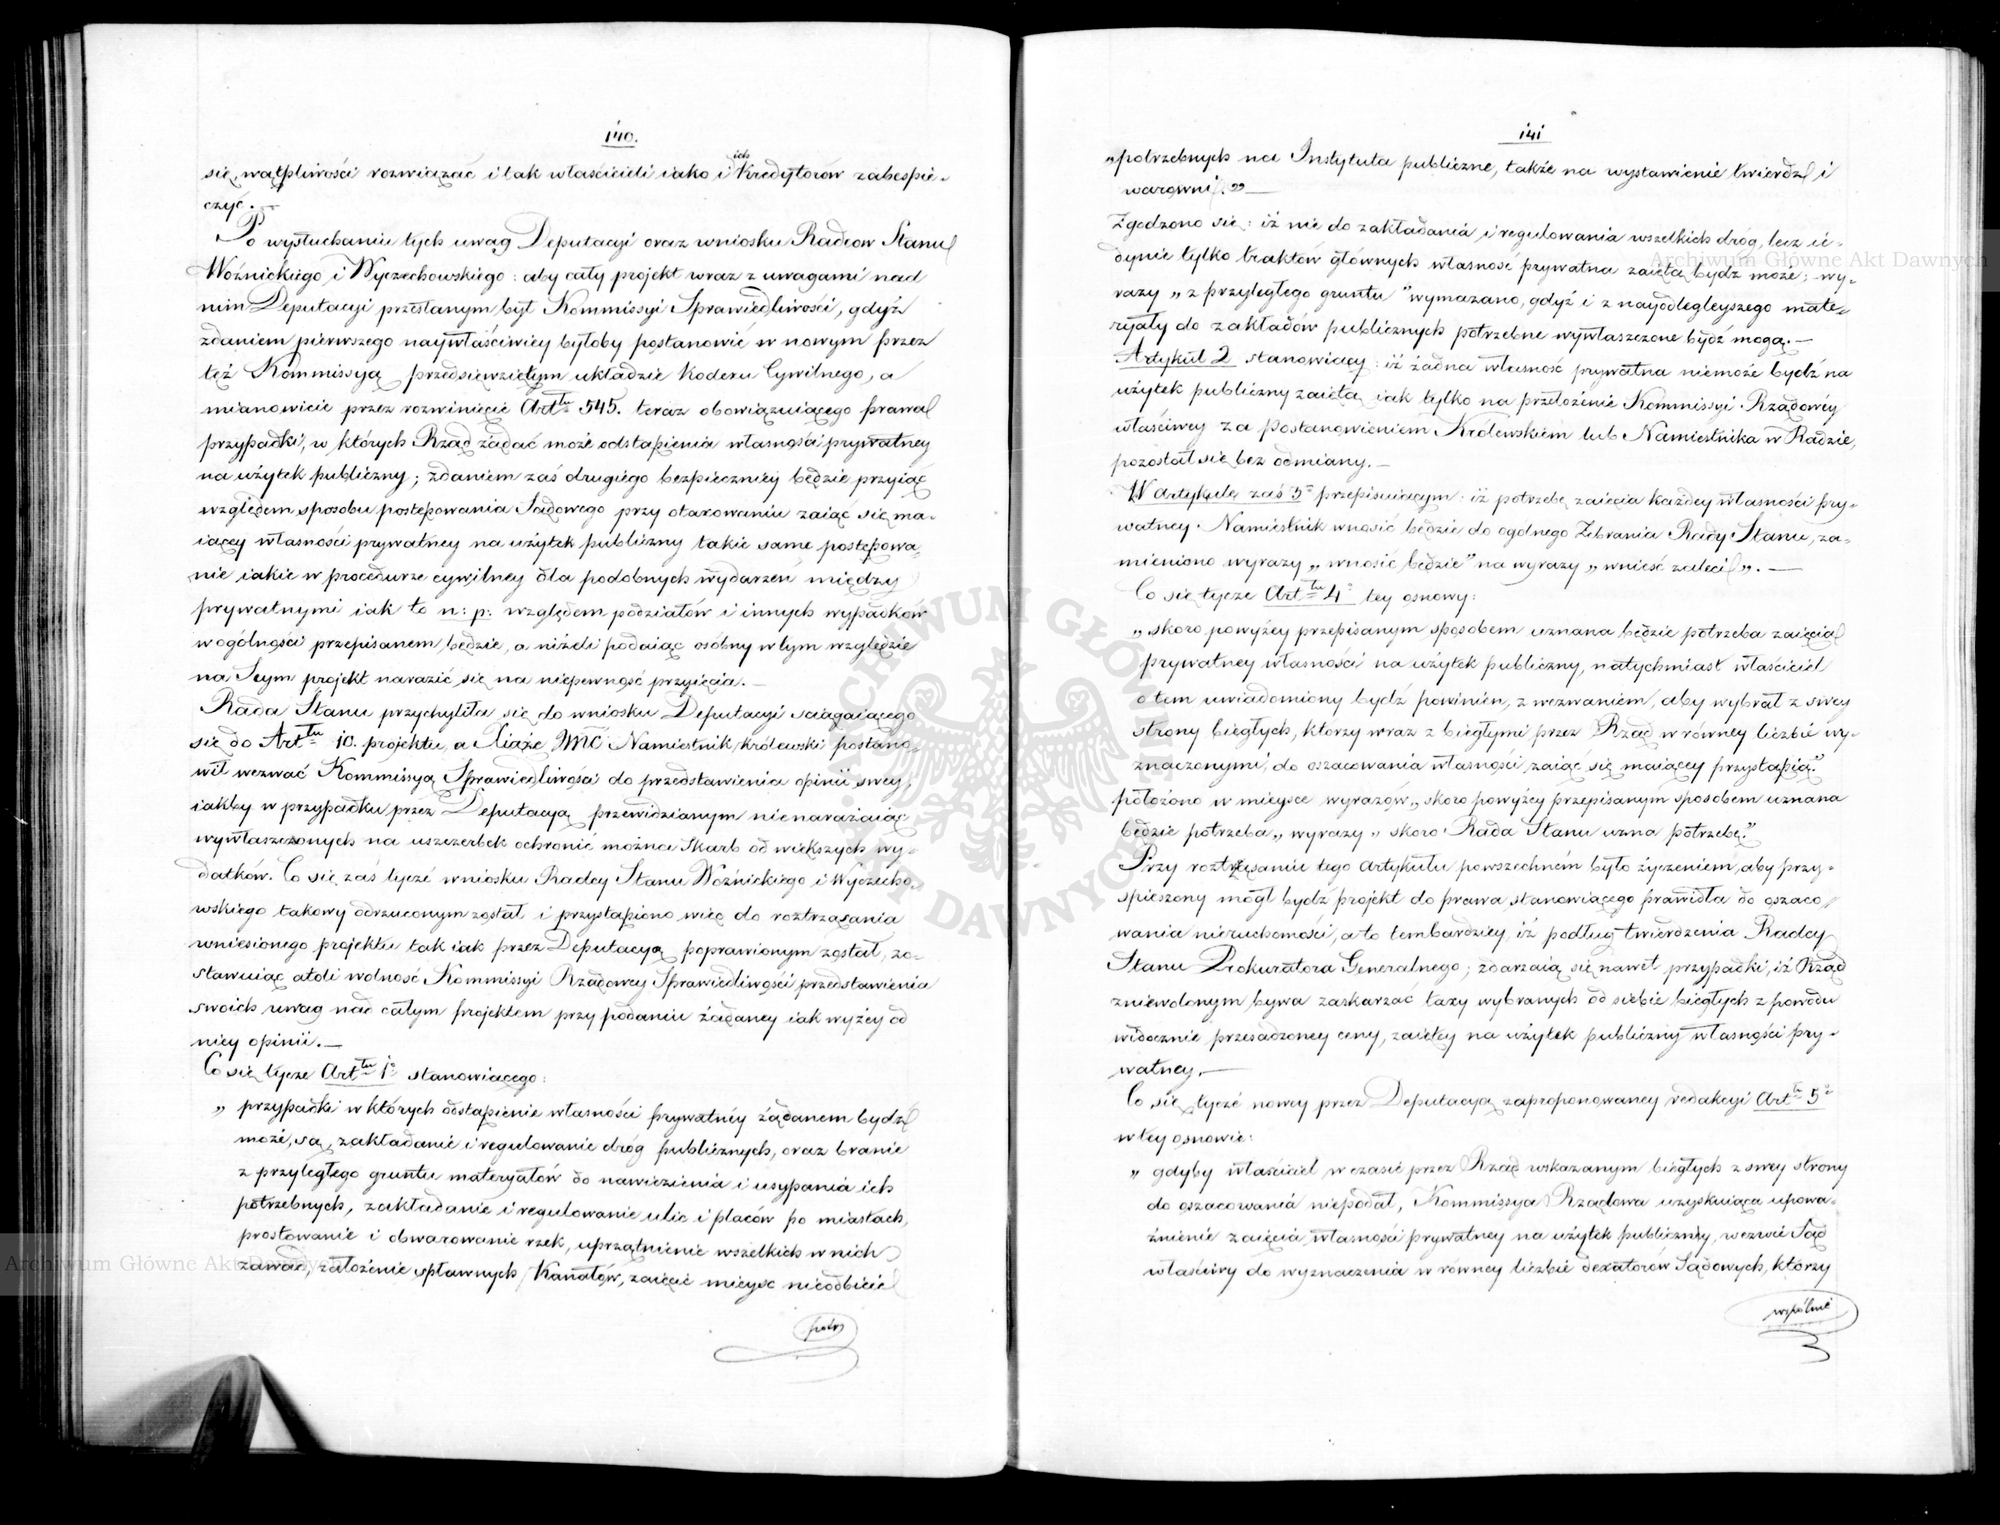 140.
się wątpliwości rozwiązać i tak właścicieli iako i ich Kredytorów zabespie-
czyć. —
Po wysłuchaniu tych uwag Deputacyi oraz wniosku Radców Stanu
Woźnickiego i Wyczechowskiego: aby cały projekt wraz z uwagami nad
nim Deputacyi przesłanym był Kommissyi Sprawiedliwości, gdyż
zdaniem pierwszego naywłaściwiey byłoby postanowić w nowym przez
też Kommissyą przedsięwziętym układzie Kodexu Cywilnego, a
mianowicie przez rozwinięcie Arttu 545. teraz obowiązuiącego prawa
przypadki, w których Rząd żądać może odstąpienia własności prywatney
na użytek publiczny; zdaniem zaś drugiego bezpieczniey będzie przyiąć
względem sposobu postępowania Sądowego przy otaxowaniu zaiąć się ma-
iącey własności prywatney na użytek publiczny takie same postępowa-
nie iakie w procedurze cywilney dla podobnych wydarzeń między
prywatnymi iak to n: p: względem podziałów i innych wypadków
w ogólności przepisanem będzie, a niżeli podaiąc osobny w tym względzie
na Seym projekt narazić się na niepewność przyięcia. —
Rada Stanu przychyliła się do wniosku Deputacyi sciągaiącego
się do Arttu 10. projektu, a Xiąże JMC Namiestnik królewski postano-
wił wezwać Kommissyą Sprawiedliwości do przedstawienia opinii swey,
iakby w przypadku przez Deputacyą przewidzianym nienarażaiąc
wywłaszczonych na uszczerbek ochronić można Skarb od większych wy-
datków. Co się zaś tycze wniosku Radcy Stanu Woźnickiego i Wyczecho-
wskiego takowy odrzuconym został i przystąpiono więc do roztrząsania
wniesionego projektu tak iak przez Deputacyą poprawionym został, zo-
stawuiąc atoli wolność Kommissyi Rządowey Sprawiedliwości przedstawienia
swoich uwag nad całym projektem przy podaniu żądaney iak wyżey od
niey opinii. —
Co się tycze Arttu 1o stanowiącego:
„ przypadki w których odstąpienie własności prywatney żądanem bydź
może, są, zakładanie i regulowanie dróg publicznych, oraz branie
z przyległego gruntu materyałów do nawiezienia i usypania ich
potrzebnych, zakładanie i regulowanie ulic i placów po miastach,
prostowanie i obwarowanie rzek, uprzątnienie wszelkich w nich
zawad, założenie spławnych Kanałów, zaięcie mieysc nieodbicie
potrz
141
„ potrzebnych na Instytuta publiczne, także na wystawienie twierdz i
warowni." —
Zgodzono się: iż nie do zakładania i regulowania wszelkich dróg, lecz ie-
dynie tylko traktów głównych własność prywatna zaięta bydź może; wy-
razy „ z przyległego gruntu " wymazano, gdyż i z nayodlegleyszego mate-
ryały do zakładów publicznych potrzebne wywłaszczone bydź mogą. —
Artykuł 2 stanowiący: iż żadna własność prywatna niemoże bydź na
użytek publiczny zaięta iak tylko na przełożenie Kommissyi Rządowey
właściwey za Postanowieniem Królewskiem lub Namiestnika w Radzie,
pozostał się bez odmiany. —
W artykule zaś 3o przepisuiącym: iż potrzebę zaięcia każdey własności pry-
watney Namiestnik wnosić będzie do ogólnego Zebrania Rady Stanu, za-
mieniono wyrazy „ wnosić będzie" na wyrazy „ wnieść zalecił ". —
Co się tycze Arttu 4o tey osnowy:
„ skoro powyżey przepisanym sposobem uznana będzie potrzeba zaięcia
prywatney własności na użytek publiczny, natychmiast właściciel
o tem uwiadomiony bydź powinien, z wezwaniem, aby wybrał z swey
strony biegłych, ktorzy wraz z biegłymi przez Rząd w równey liczbie wy-
znaczonymi, do oszacowania własności zaiąć się maiącey przystąpią."
położono w mieysce wyrazów „ skoro powyżey przepisanym sposobem uznana
będzie potrzeba „ wyrazy „ skoro Rada Stanu uzna potrzebę."
Przy roztrząsaniu tego artykułu powszechném było życzeniem, aby przy-
spieszony mógł bydź projekt do prawa stanowiącego prawidła do oszaco-
wania nieruchomości, a to tembardziey, iż podług twierdzenia Radcy
Stanu Prokuratora Generalnego; zdarzaią się nawet przypadki, iż Rząd
zniewolonym bywa zaskarżać taxy wybranych od siebie biegłych z powodu
widocznie przesadzoney ceny, zaiętey na użytek publiczny własności pry-
watney. —
Co się tycze nowey przez Deputacyą zaproponowaney redakcyi Arttu 5o
w tey osnowie:
„ gdyby właściciel w czasie przez Rząd wskazanym biegłych z swey strony
do oszacowania niepodał, Kommissya Rządowa uzyskuiąca upowa-
żnienie zaięcia własności prywatney na użytek publiczny, wezwie Sąd
właściwy do wyznaczenia w równey liczbie dexatorów Sądowych, którzy
wspólnie
Archiwum Główne Akt Dawnych
Archiwum Główne Akt Dawnych
ARCHIWUM GŁÓWNE AKT DAWNYCH